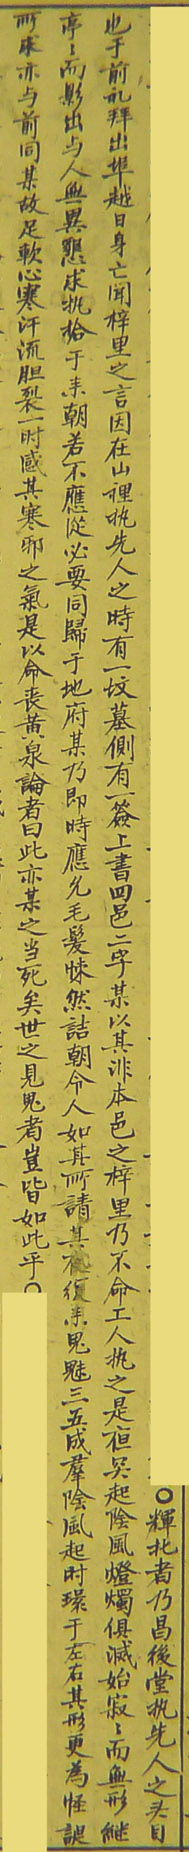 輝北者乃昌後堂执先人之头目
也于前礼拜出埠越日身亡聞梓里之言因在山裡执先人之時有一坟墓側有一簽上書四邑二字某以其非本邑之梓里乃不命工人执之是夜哭起陰風燈燭俱滅始寂〻而無形継
亭〻而影出与人無異懇求执拾于来朝若不應從必要同歸于地府某乃即時應允毛髮悚然詰朝令人如其所請其夜復来鬼魅三五成羣陰風起时環于左右其形更為怪誕
所求亦与前同某故足軟心寒汗流胆裂一时感其寒邪之氣是以命丧黄泉論者曰此亦某之当死矣世之見鬼者豈皆如此乎